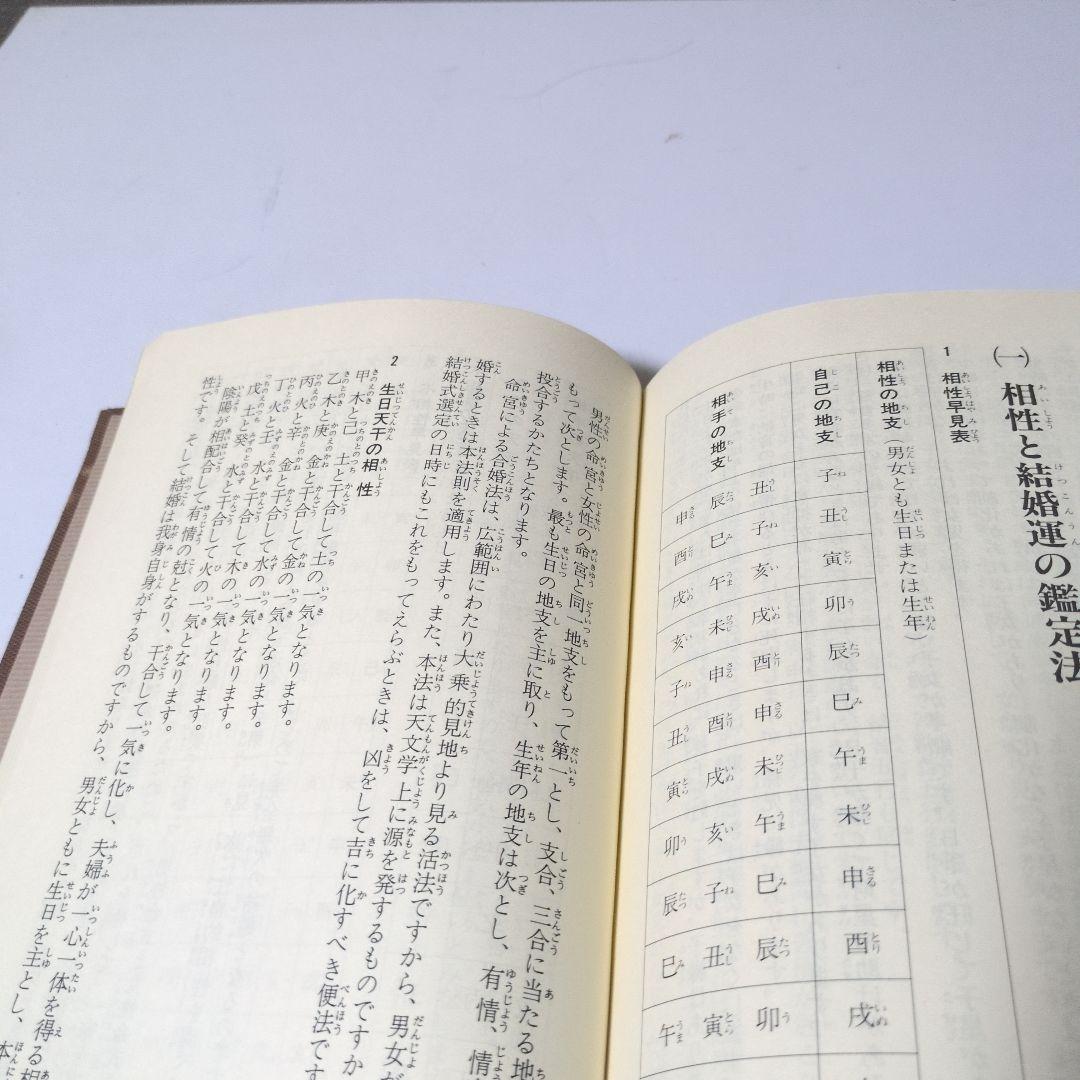 (一) 相性と結婚運の鑑定法
1 相性早見表
相性の地支（男女とも生日または生年）
自己の地支 子 丑 寅 卯 辰 巳 午 未 申 酉 戌
相手の地支 丑 子 亥 戌 酉 申 未 午 巳 辰 卯
辰 巳 午 未 申 酉 戌 亥 子 丑 寅
申 酉 戌 亥 子 丑 寅 卯 辰 巳 午
男性の命宮と女性の命宮と同一地支をもって第一とし、支合、三合に当たる地
もって次とします。最も生日の地支を主に取り、生年の地支は次とし、有情、情
投合するかたちとなります。
命宮による合婚法は、広範囲にわたり大乗的見地より見る活法ですから、男女が
婚するときは本法則を適用します。また、本法は天文学上に源を発するものですか
結婚式選定の日時にもこれをもってえらぶときは、凶をして吉に化すべき便法です
2 生日天干の相性
甲木と己土と干合して土の一気となります。
乙木と庚金と干合して金の一気となります。
丙火と辛金と干合して水の一気となります。
丁火と壬水と干合して木の一気となります。
戊土と癸水と干合して火の一気となります。
陰陽が相配合して有情の尅となり、干合して一気に化し、夫婦が一心一体を得る相
性です。そして結婚は我身自身がするものですから、男女ともに生日を主とし、本